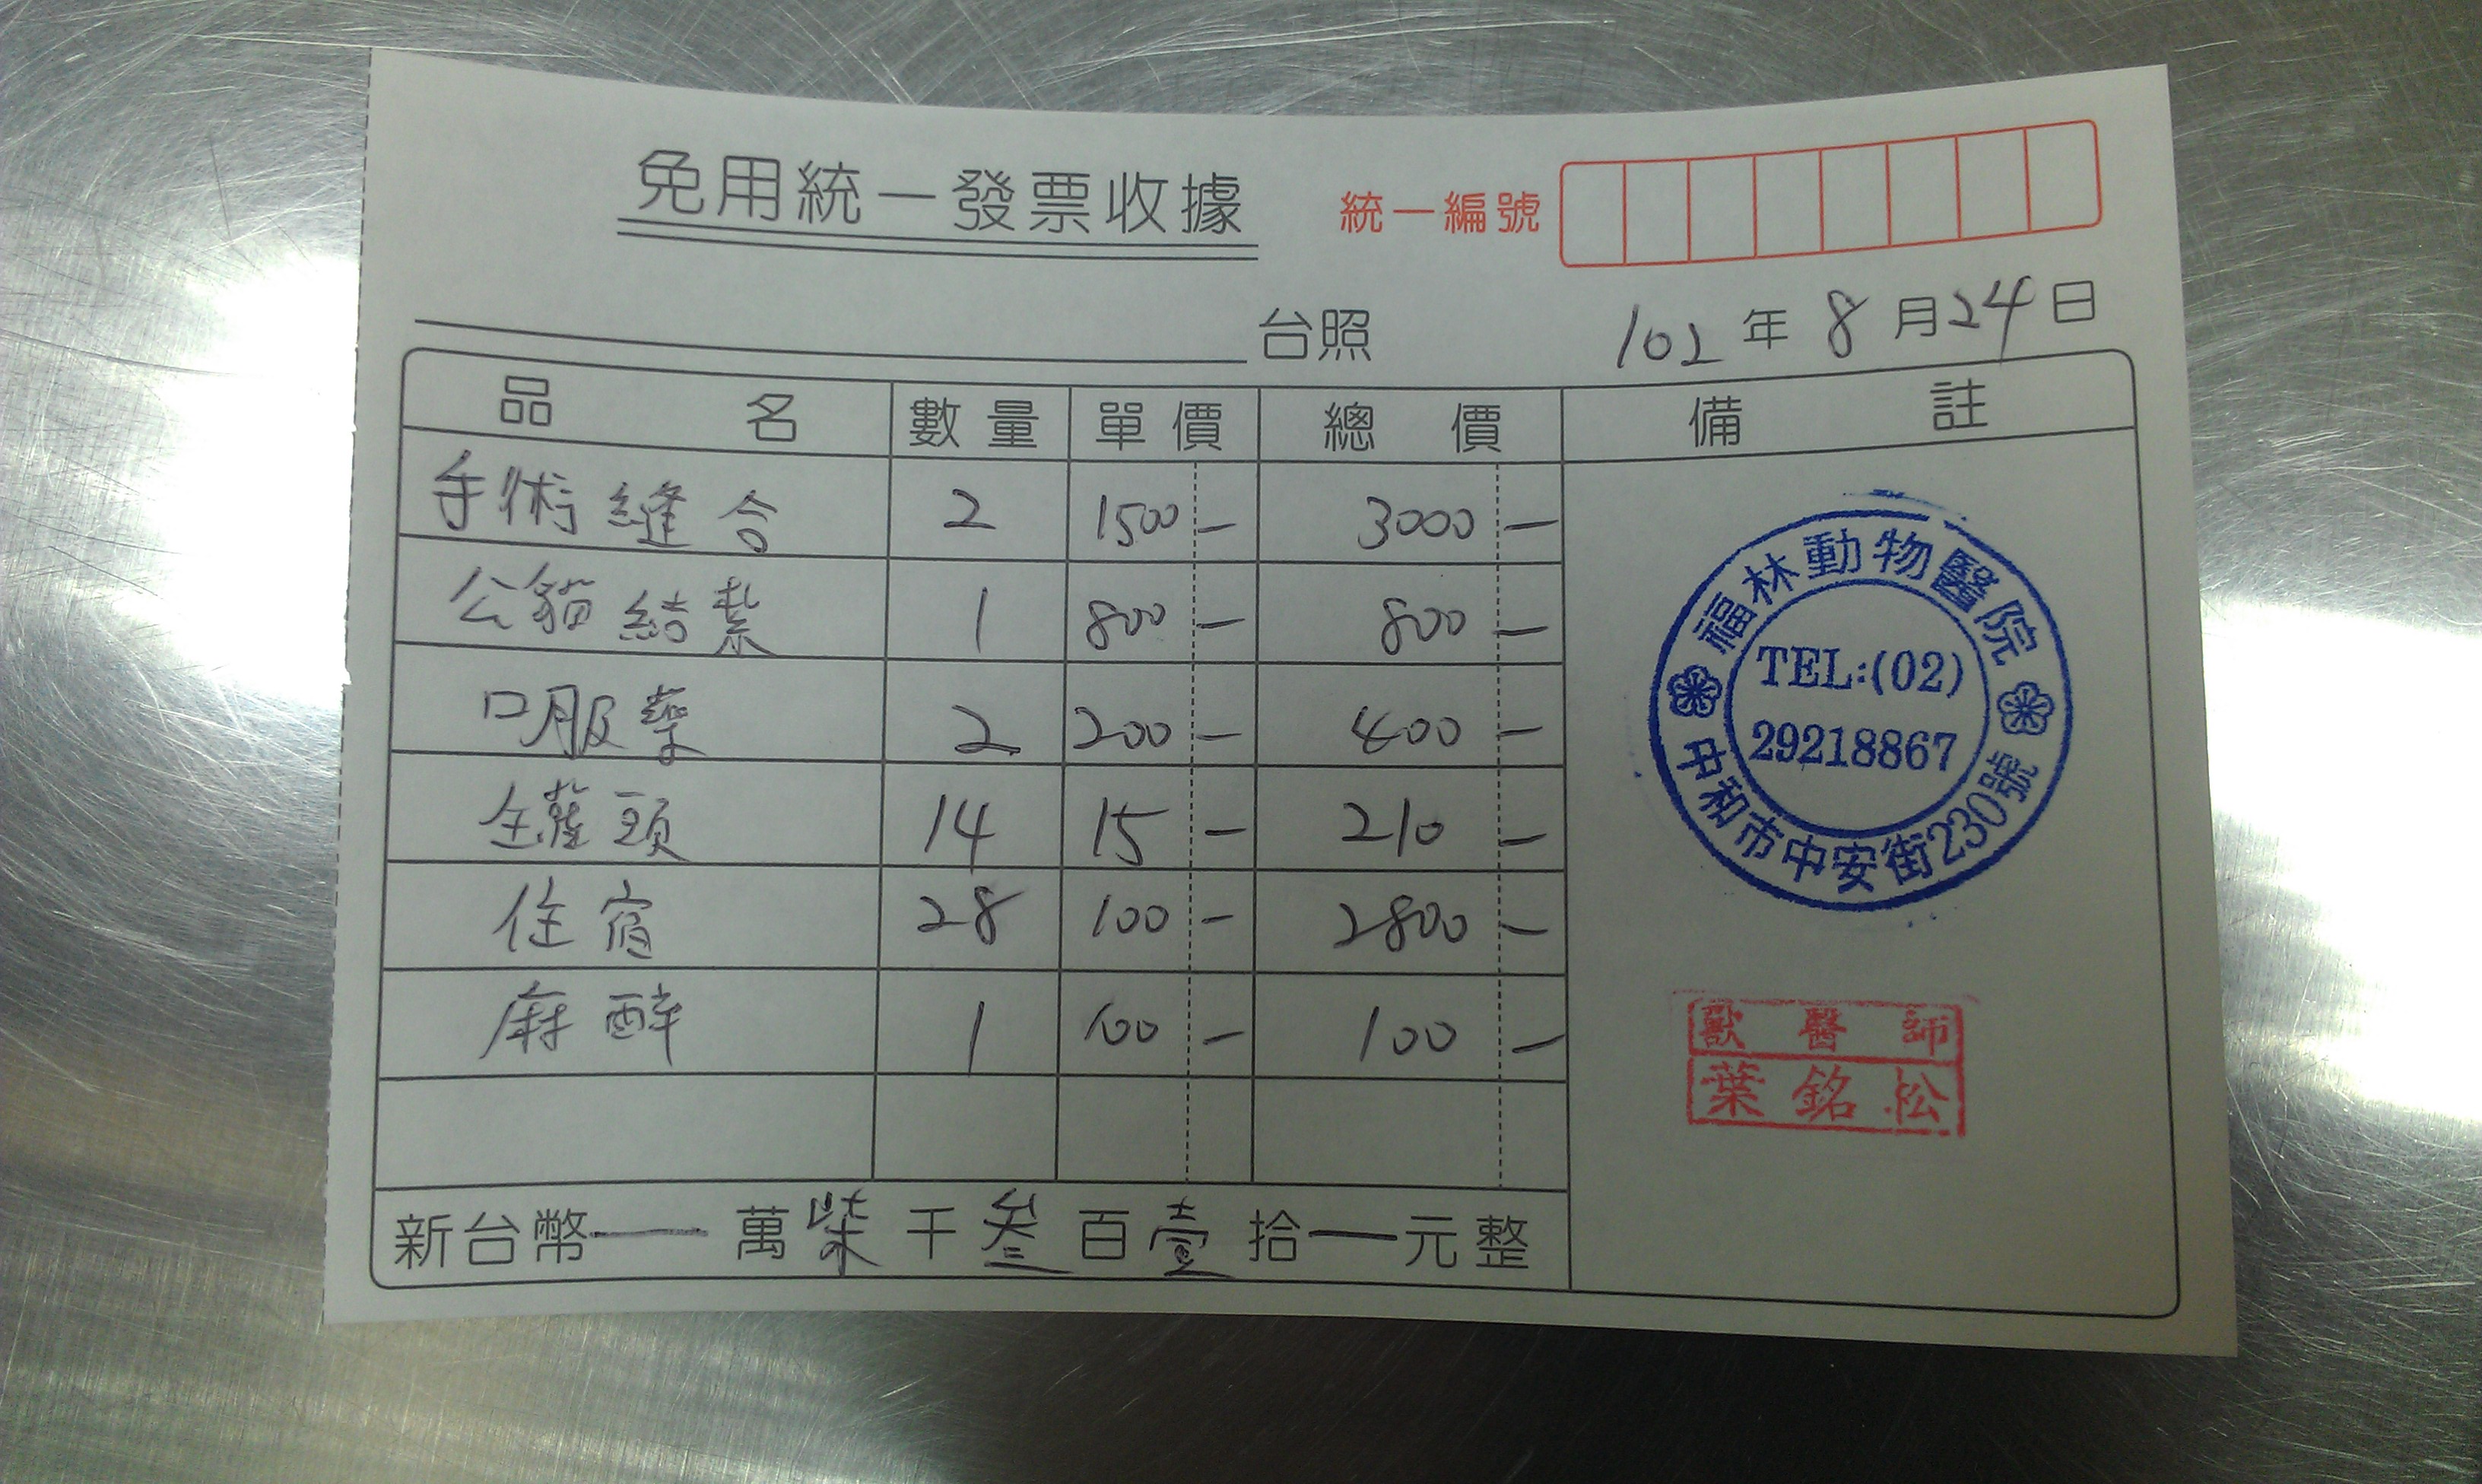 免用統一發票收據
統一編號
台照
102年8月24日
品名 數量 單價 總價 備註
手術縫合 2 1500- 3000-
公貓結紮 1 800- 800-
口服藥 2 200- 400-
罐頭 14 15- 210-
住宿 28 100- 2800-
麻醉 1 100- 100-
新台幣—萬柒千叁百壹拾—元整
福林動物醫院
TEL:(02)
29218867
中和市中安街230號
獸醫師
葉銘松